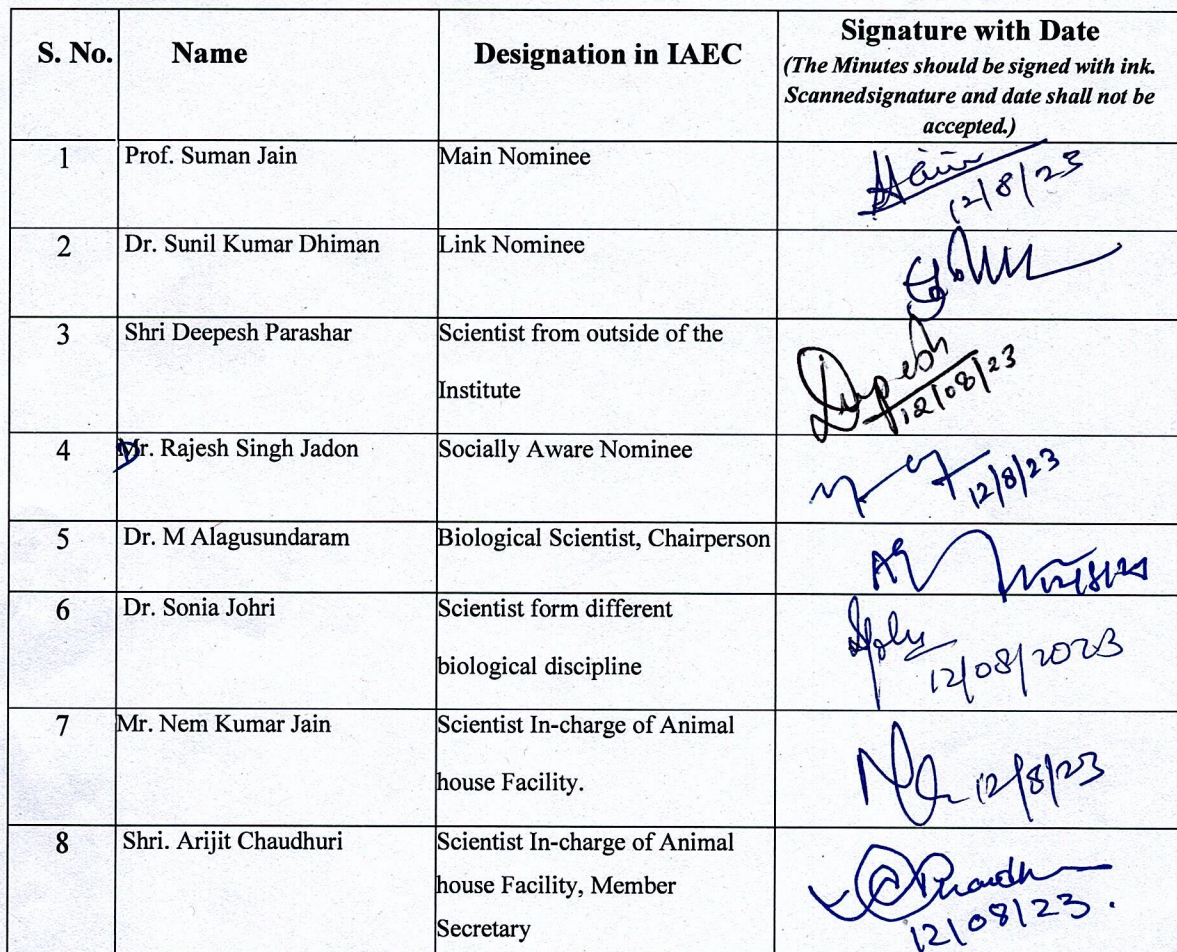 S. No.
Name
Designation in IAEC
Signature with Date
(The Minutes should be signed with ink.
Scannedsignature and date shall not be
accepted.)
1
Prof. Suman Jain
Main Nominee
12/8/23
2
Dr. Sunil Kumar Dhiman
Link Nominee
3
Shri Deepesh Parashar
Scientist from outside of the
Institute
Deepesh
12/08/23
4
Dr. Rajesh Singh Jadon
Socially Aware Nominee
12/8/23
5
Dr. M Alagusundaram
Biological Scientist, Chairperson
6
Dr. Sonia Johri
Scientist form different
biological discipline
12/08/2023
7
Mr. Nem Kumar Jain
Scientist In-charge of Animal
house Facility.
12/8/23
8
Shri. Arijit Chaudhuri
Scientist In-charge of Animal
house Facility, Member
Secretary
12/08/23.